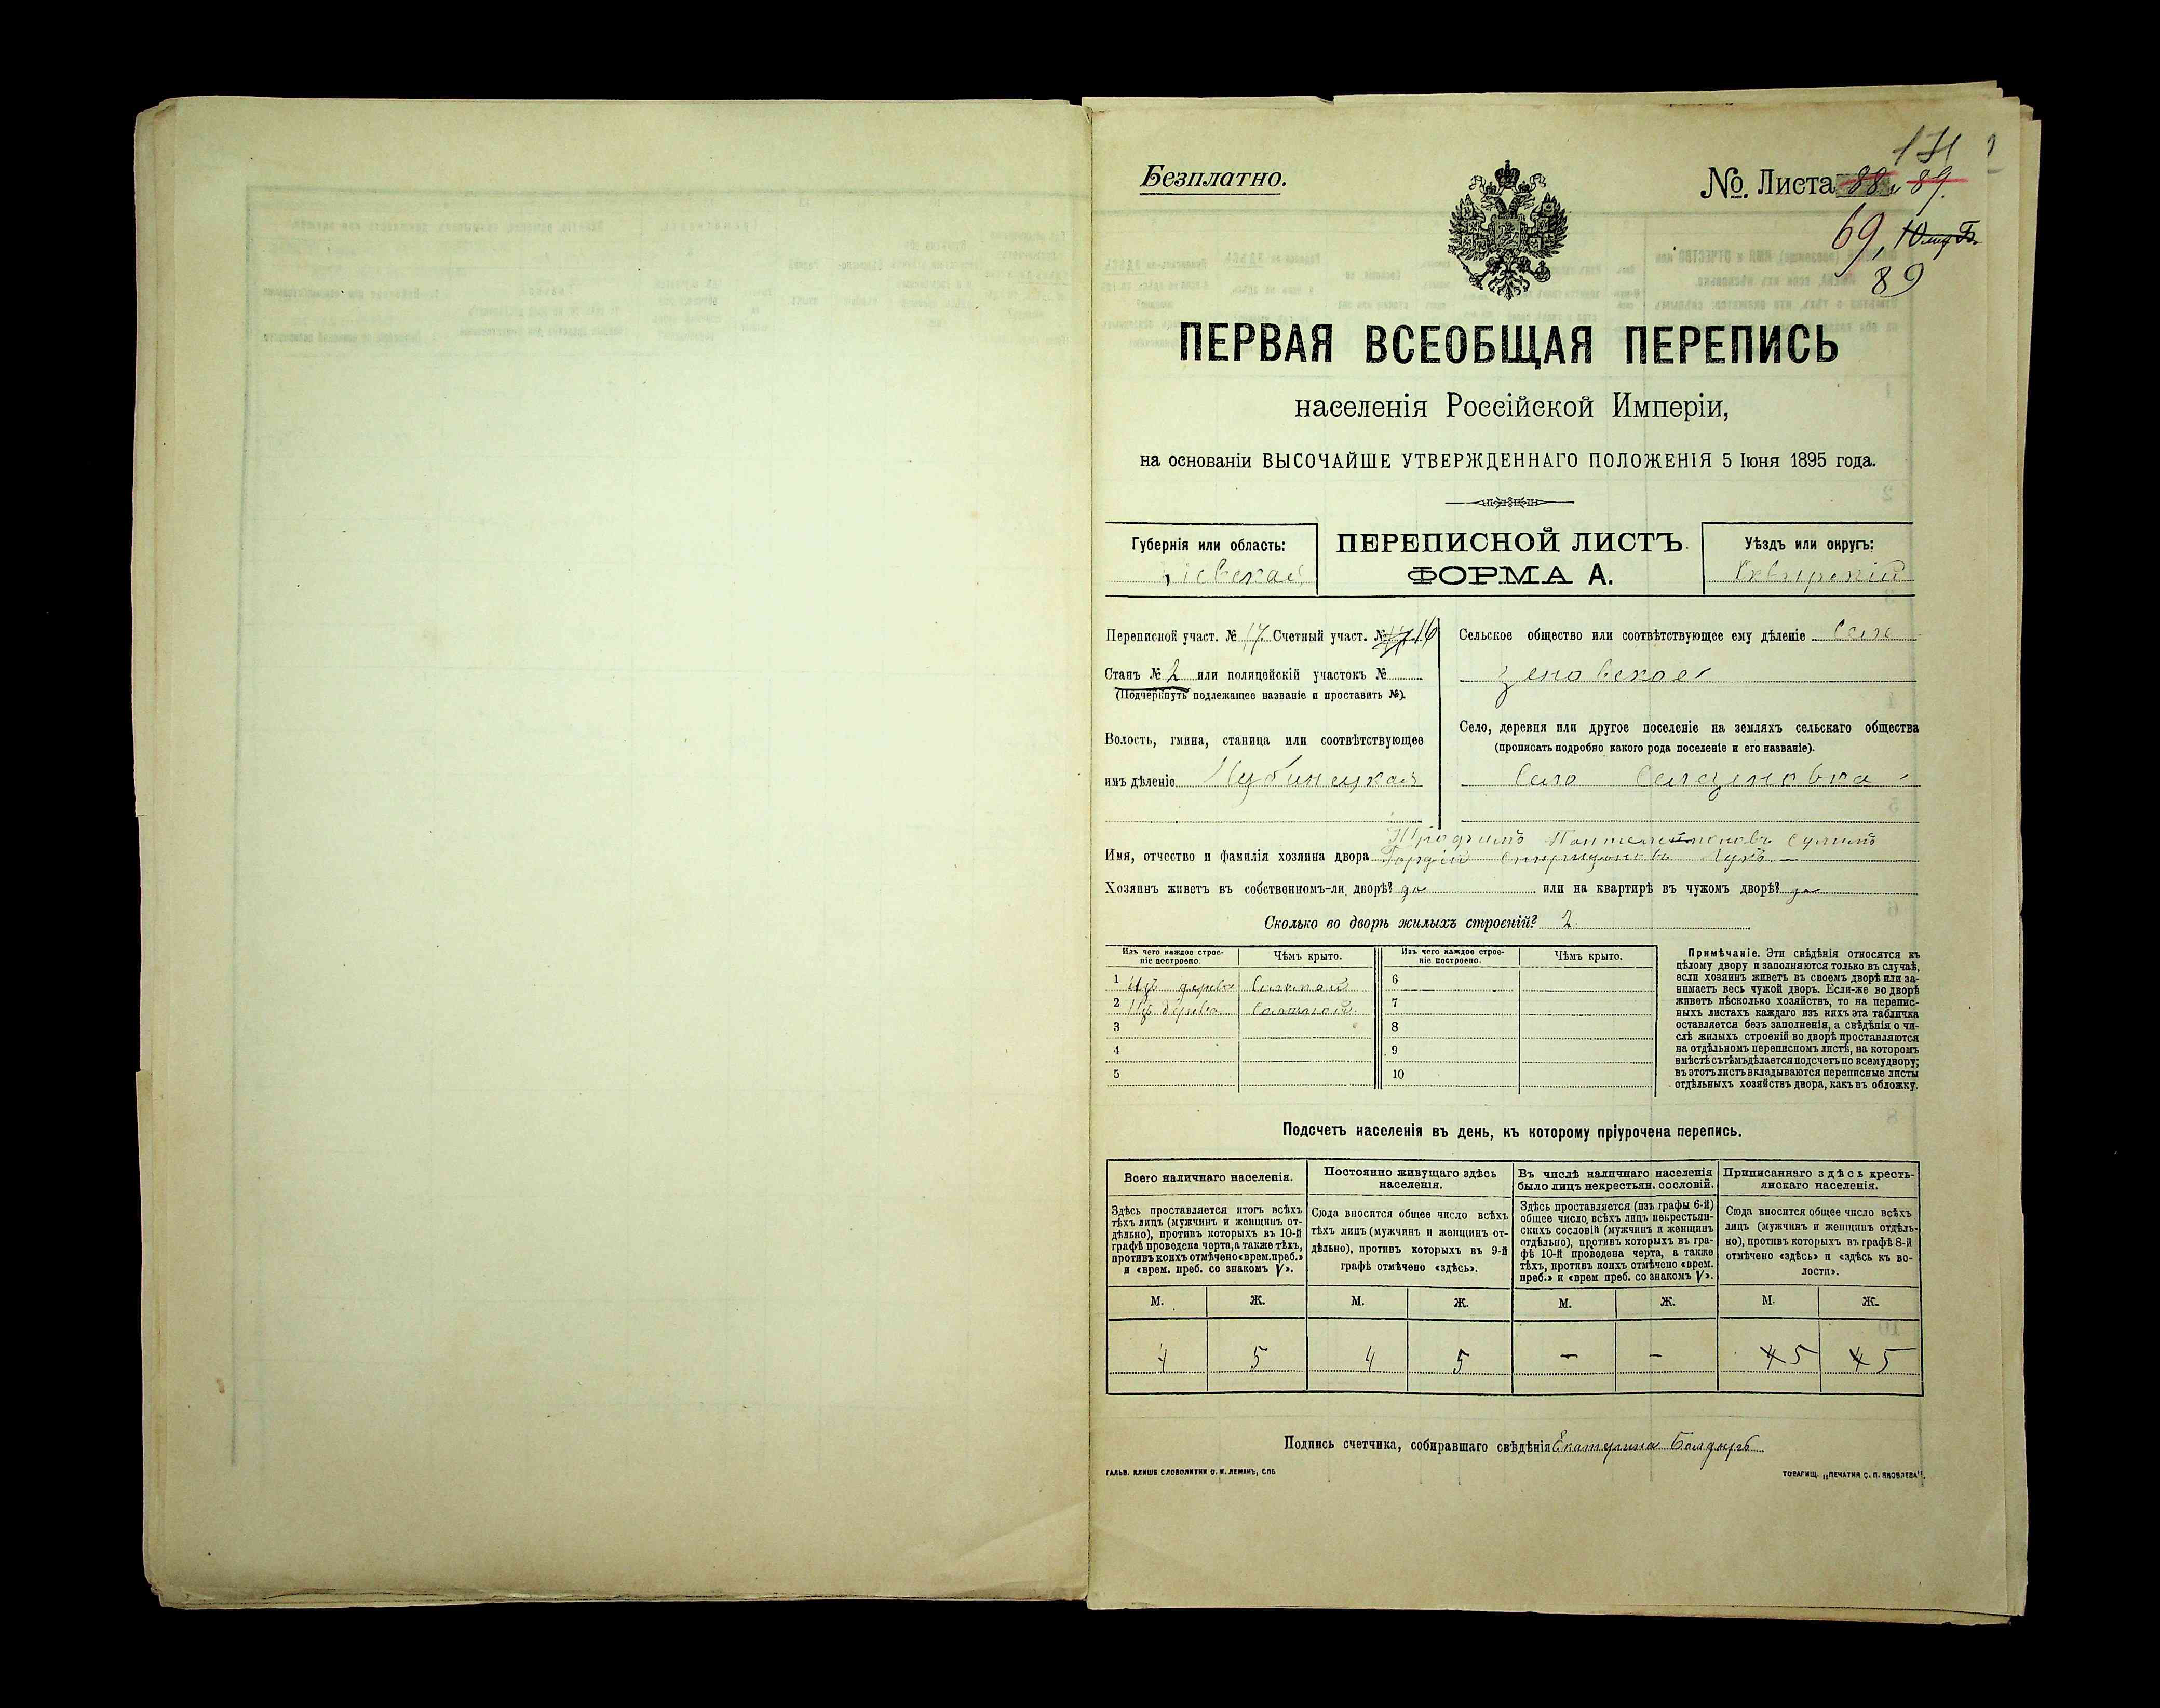 Безплатно.
№ Листа 88 и 89.
69,
89
ПЕРВАЯ ВСЕОБЩАЯ ПЕРЕПИСЬ
населенія Россійской Имперіи,
на основаніи ВЫСОЧАЙШЕ УТВЕРЖДЕННАГО ПОЛОЖЕНІЯ 5 Іюня 1895 года.
Губернія или область:
Кіевская
ПЕРЕПИСНОЙ ЛИСТЪ
ФОРМА А.
Уѣздъ или округъ:
Сквирскій
Переписной участ. № 17. Счетный участ. № 16
Станъ № 2 или полицейскій участокъ №
(Подчеркнуть подлежащее названіе и проставить №).
Волость, гмина, станица или соотвѣтствующее
имъ дѣленіе
Сельское общество или соотвѣтствующее ему дѣленіе Селе
зеновское
Село, деревня или другое поселеніе на земляхъ сельскаго общества
(прописать подробно какого рода поселеніе и его названіе).
Село Селезеновка
Имя, отчество и фамилія хозяина двора
Хозяинъ живетъ въ собственномъ-ли дворѣ? да или на квартирѣ въ чужомъ дворѣ?
Сколько во дворѣ жилыхъ строеній? 2.
Изъ чего каждое строе-
ніе построено.
Чѣмъ крыто.
Изъ чего каждое строе-
ніе построено.
Чѣмъ крыто.
1 Изъ дерева Соломой
2 Изъ дерева Соломой
3
4
5
6
7
8
9
10
Примѣчаніе. Эти свѣдѣнія относятся къ
цѣлому двору и заполняются только въ случаѣ,
если хозяинъ живетъ въ своемъ дворѣ или за-
нимаетъ весь чужой дворъ. Если-же во дворѣ
живетъ нѣсколько хозяйствъ, то на перепис-
ныхъ листахъ каждаго изъ нихъ эта табличка
оставляется безъ заполненія, а свѣдѣнія о чи-
слѣ жилыхъ строеній во дворѣ проставляются
на отдѣльномъ переписномъ листѣ, на которомъ
вмѣстѣ съ тѣмъ дѣлается подсчетъ по всему двору;
въ этотъ листъ вкладываются переписные листы
отдѣльныхъ хозяйствъ двора, какъ въ обложку.
Подсчетъ населенія въ день, къ которому пріурочена перепись.
Всего наличнаго населенія.
Постоянно живущаго здѣсь
населенія.
Въ числѣ наличнаго населенія
было лицъ некрестьян. сословій.
Приписаннаго здѣсь кресть-
янскаго населенія.
Здѣсь проставляется итогъ всѣхъ
тѣхъ лицъ (мужчинъ и женщинъ от-
дѣльно), противъ которыхъ въ 10-й
графѣ проведена черта, а также тѣхъ,
противъ коихъ отмѣчено «врем. преб.»
и «врем. преб. со знакомъ V».
Сюда вносится общее число всѣхъ
тѣхъ лицъ (мужчинъ и женщинъ от-
дѣльно), противъ которыхъ въ 9-й
графѣ отмѣчено «здѣсь».
Здѣсь проставляется (изъ графы 6-й)
общее число всѣхъ лицъ некрестьян-
скихъ сословій (мужчинъ и женщинъ
отдѣльно), противъ которыхъ въ гра-
фѣ 10-й проведена черта, а также
тѣхъ, противъ коихъ отмѣчено «врем.
преб.» и «врем преб. со знакомъ V».
Сюда вносится общее число всѣхъ
лицъ (мужчинъ и женщинъ отдѣль-
но), противъ которыхъ въ графѣ 8-й
отмѣчено «здѣсь» и «здѣсь къ во-
лости».
М. Ж. М. Ж. М. Ж. М. Ж.
4 5 4 5 – – 4 5 4 5
Подпись счетчика, собиравшаго свѣдѣнія Екатерина Болдырь
ГАЛЬВ. КЛИШЕ СЛОВОЛИТНИ О. И. ЛЕМАНЪ, СПБ
ТОВАРИЩ. „ПЕЧАТНЯ С. П. ЯКОВЛЕВА".